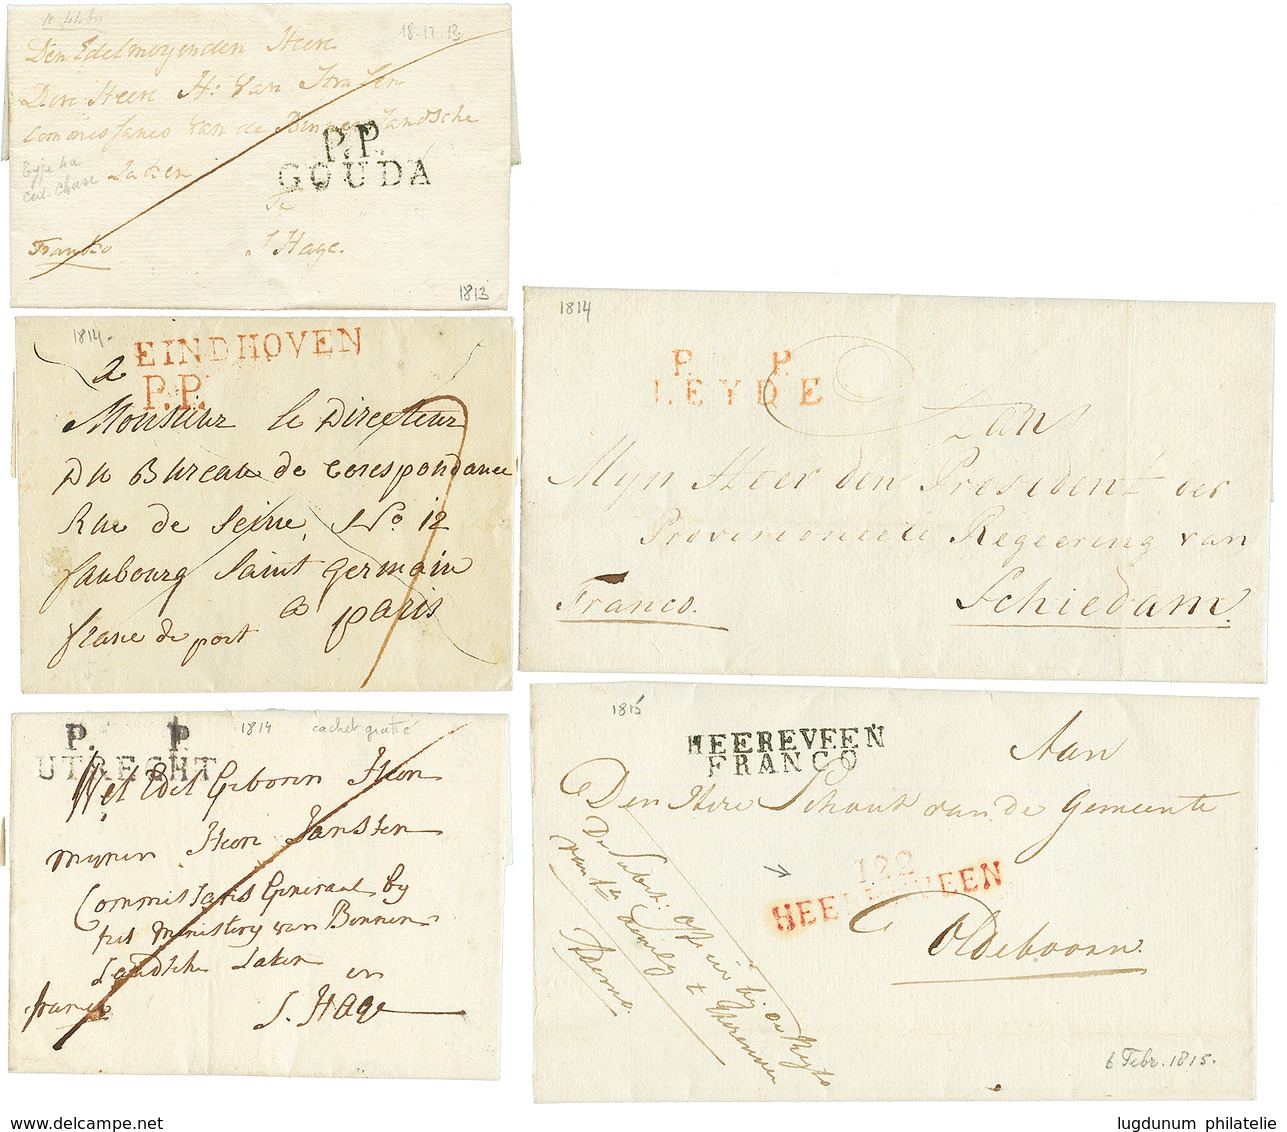 18-12 13
Den Edelmogenden Heere
Den Heere H: van Stralen
Commissaris van de Binnenlandsche
Zaken
P.P.
GOUDA
Te
s Hage.
Franko
1813
1814-
EINDHOVEN
P.P.
2
Monsieur le Directeur
Du Bureau de Corespondance
Rue de Seine, No 12
faubourg Saint Germain
a paris
franc de port
1814
P. P.
LEYDE
Aan
Myn Heer den President der
Provisioneele Regeering van
Franco. Schiedam.
P. P.
UTRECHT
1814 cachet gratté
Wel Edel Geboren Heer
mynen Heer Janssen
Commissaris Generaal by
het ministery van Binnen
Landsche Zaken
en
franco S. Hage
1815
HEEREVEEN
FRANCO
Aan
Den Here Schout van de Gemeente
122
HEEREVEEN
Oldeboorn.
6 Febr. 1815.
www.delcampe.net
lugdunum philatelie